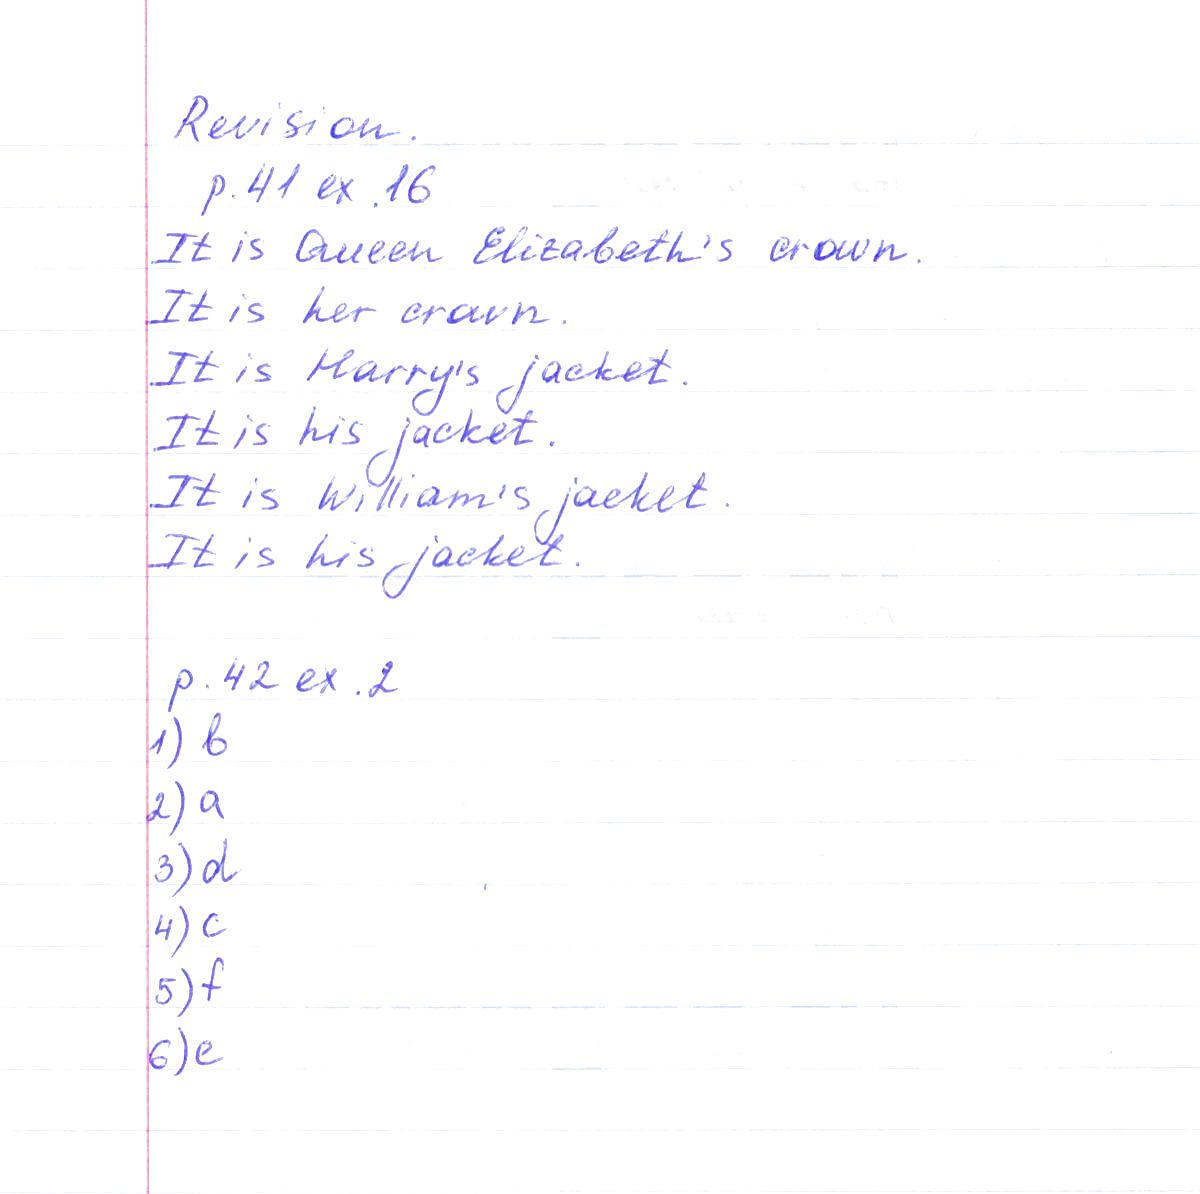 Revision.
p. 41 ex. 16
It is Queen Elizabeth's crown.
It is her crown.
It is Harry's jacket.
It is his jacket.
It is William's jacket.
It is his jacket.
p. 42 ex. 2
1) b
2) a
3) d
4) c
5) f
6) e